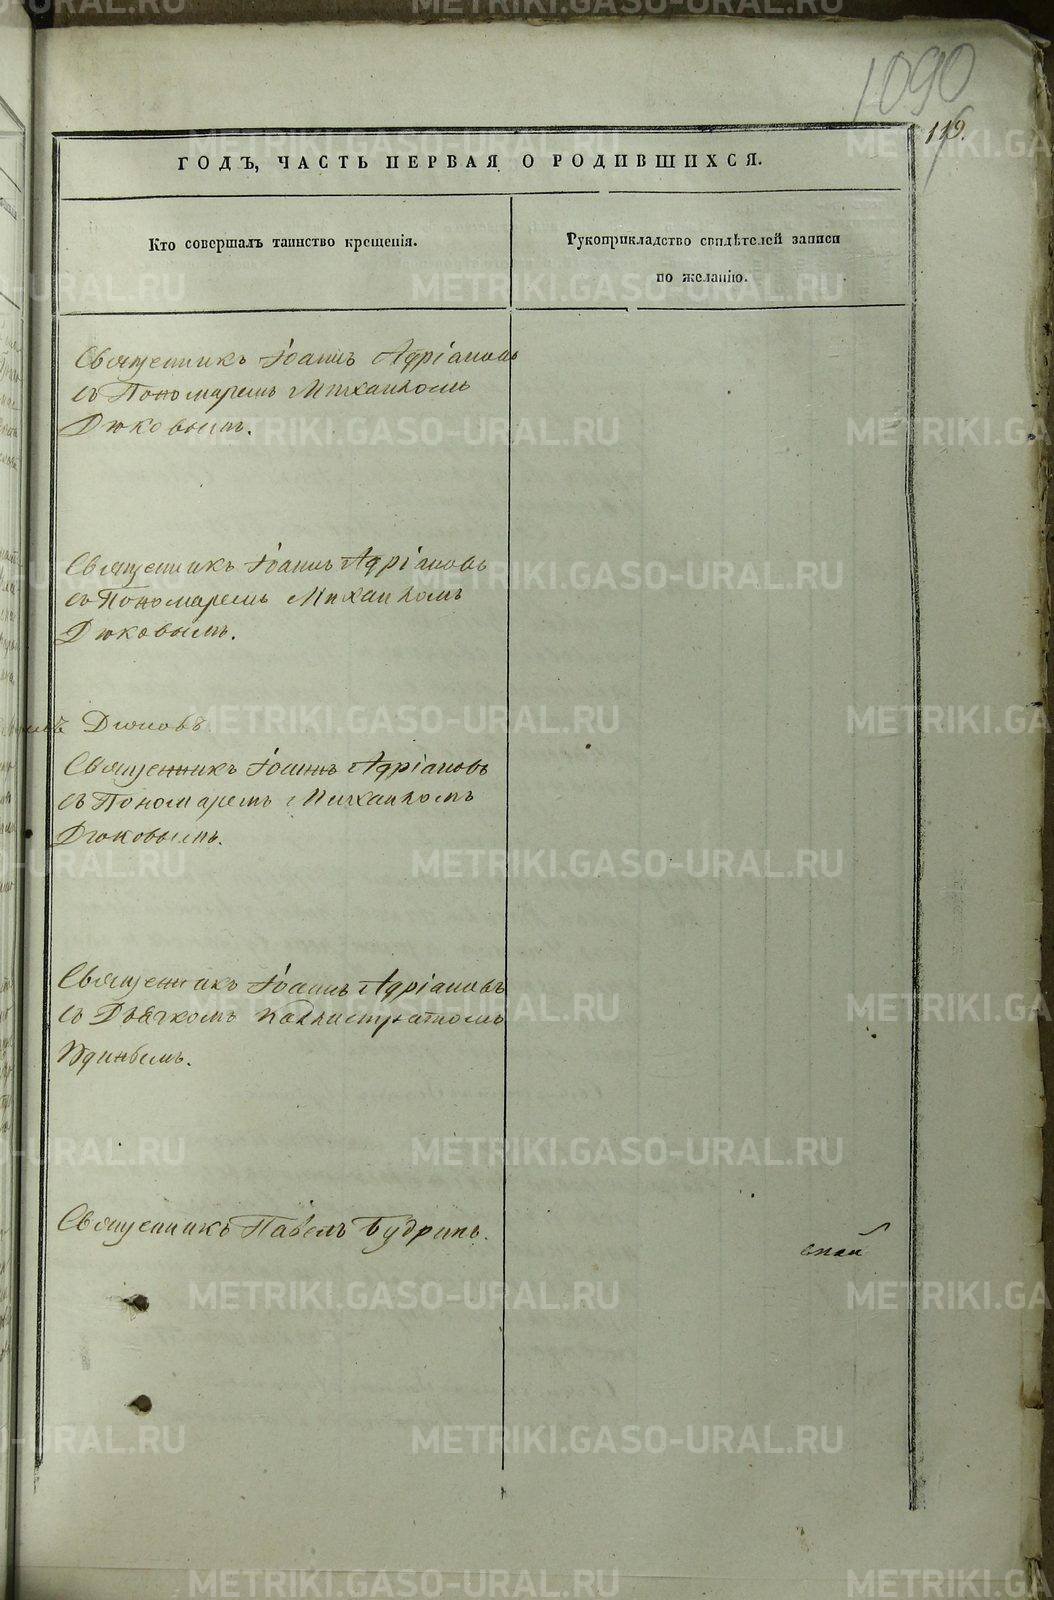 1090
119.
ГОДЪ, ЧАСТЬ ПЕРВАЯ О РОДИВШИХСЯ.
Кто совершалъ таинство крещенія.
Рукоприкладство свидѣтелей записи
по желанію.
Священникъ Іоаннъ Адріановъ
съ Пономаремъ Михаиломъ
Дюковымъ.
Священникъ Іоаннъ Адріановъ
съ Пономаремъ Михаиломъ
Дюковымъ.
Дюковъ
Священникъ Іоаннъ Адріановъ
съ Пономаремъ Михаиломъ
Дюковымъ.
Священникъ Іоаннъ Адріановъ
съ Дьячкомъ Каллистратомъ
Священникъ Павелъ Будринъ.
METRIKI.GASO-URAL.RU